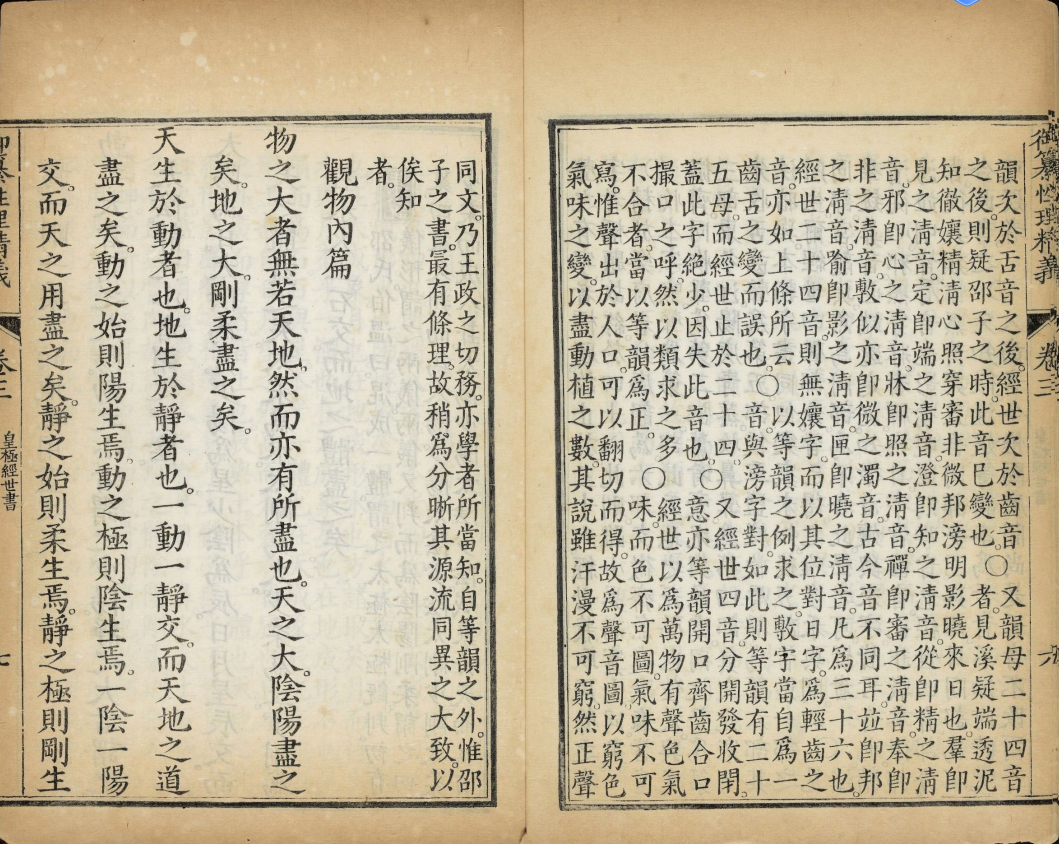 御纂性理精義 卷三
韻次於舌音之後經世次於齒音
之後則疑邵子之時此音已變也〇又韻母二十四音
知徹孃精淸心照穿審非微邦滂明影曉來日也羣卽
見之淸音定卽端之淸音澄卽知之淸音從卽精之淸
音邪卽心之淸音牀卽照之淸音禪卽審之淸音奉卽
非之淸音敷似亦卽微之濁音古今音不同耳竝卽邦
之淸音喻卽影之淸音匣卽曉之淸音凡爲三十六也
經世二十四音則無孃字而以其位對日字爲輕齒之
音亦如上條所云〇以等韻之例求之敷字當自爲一
齒舌之變而誤也〇音與滂字對如此則等韻有二十
五母而經世止於二十四〇又經世四音分開發收閉
蓋此字絶少因失此音也〇意亦等韻開口齊齒合口
撮口之呼然以類求之多〇經世以爲萬物有聲色氣
不合者當以等韻爲正〇味而色不可圖氣味不可
寫惟聲出於人口可以翻切而得故爲聲音圖以窮色
氣味之變以盡動植之數其說雖汗漫不可窮然正聲
同文乃王政之切務亦學者所當知自等韻之外惟邵
子之書最有條理故稍爲分晰其源流同異之大致以
俟知
者
觀物內篇
物之大者無若天地然而亦有所盡也天之大陰陽盡之
矣地之大剛柔盡之矣
天生於動者也地生於靜者也一動一靜交而天地之道
盡之矣動之始則陽生焉動之極則陰生焉一陰一陽
交而天之用盡之矣靜之始則柔生焉靜之極則剛生
卷三 皇極經世書 七